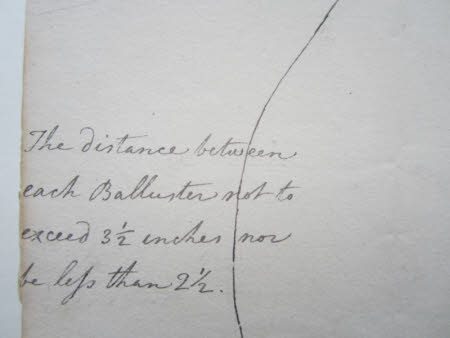 The distance between
each Balluster not to
exceed 3½ inches nor
be leſs than 2½.